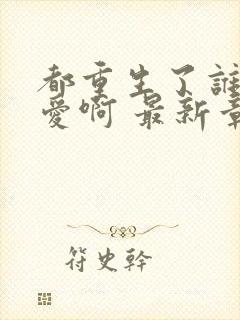 都重生了誰
愛啊 最新章
符史幹